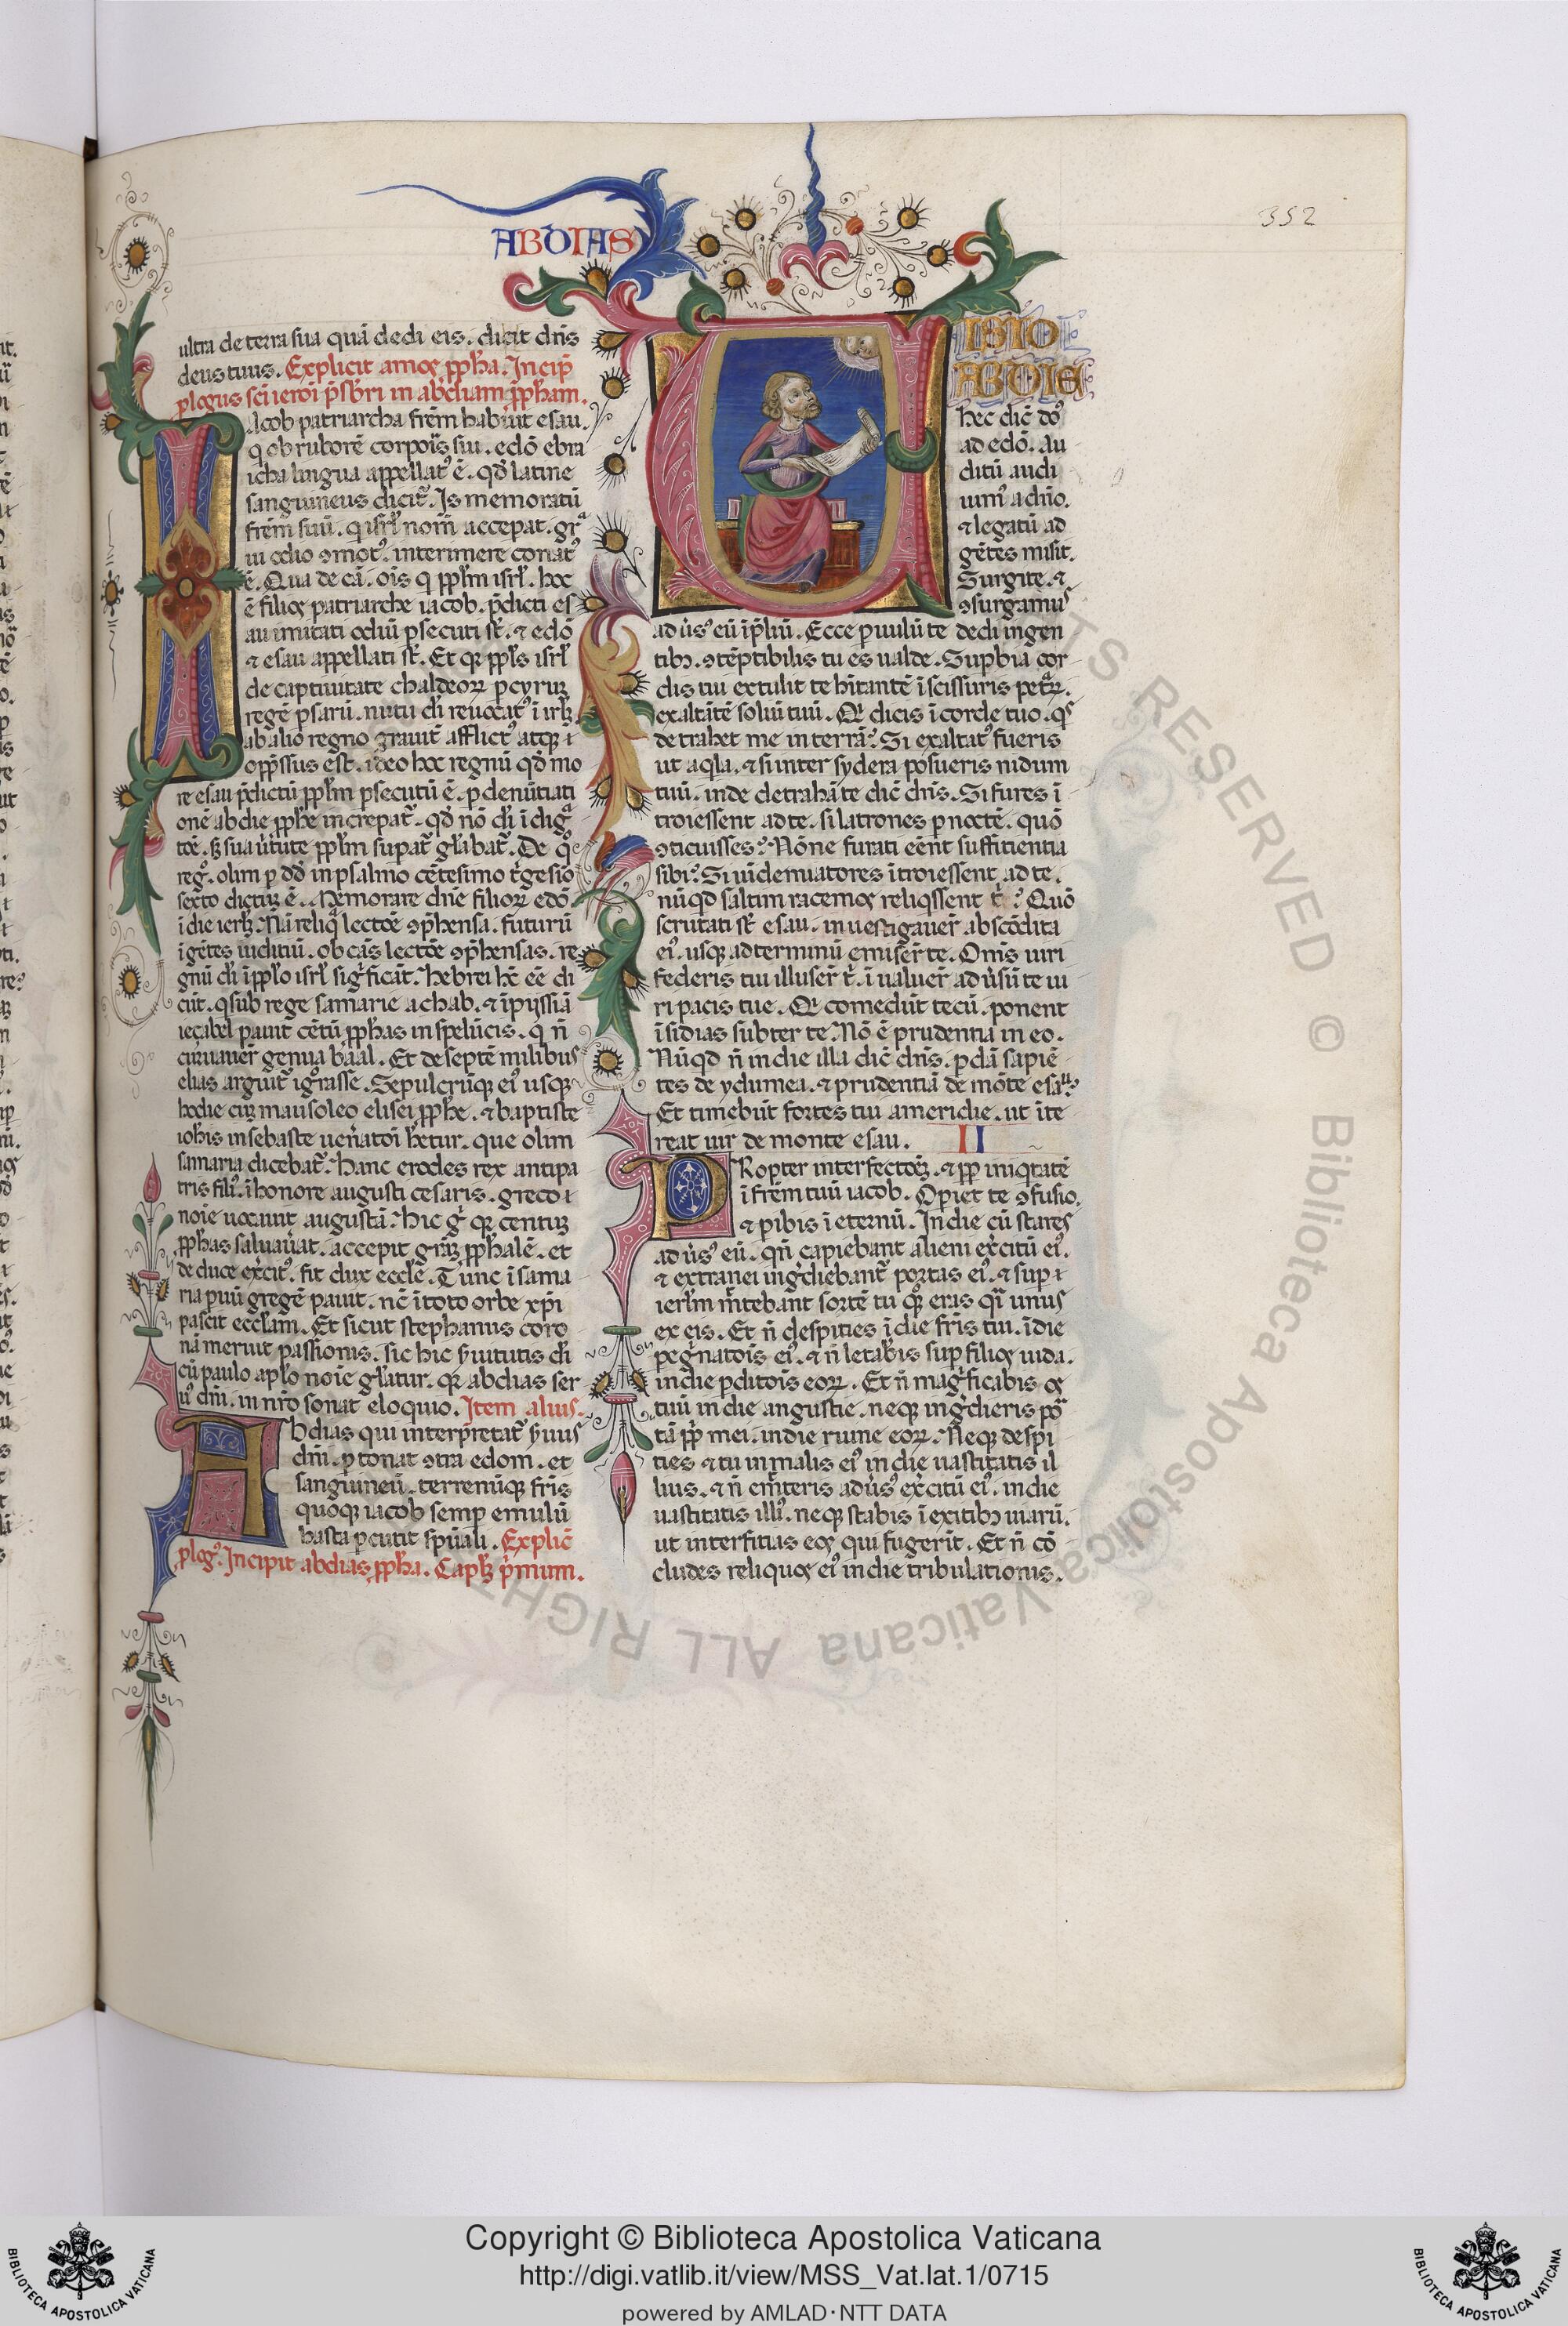 352
ABDIAS
ultra de terra sua quā dedi eis. dicit dn̄s
deus tuus. Explicit amos ꝓph̄a. Incip̄
ꝓlogus sc̄i ieroī p̄sbr̄i in abdiam ꝓph̄am.
Iacob patriarcha frēm habuit esau.
q ob ruborē corpoīs sui. edō ebra
icha lingua appellatꝰ ē. qđ latine
sanguineus dicit̄. Is memoratū
frēm suū. q isrł nom̄ accepat. grᵃ
in odio ꝯmotꝰ. interimere conatꝰ
ē. Qua de cā. oīs q ppłm isrł. hoc
ē filios patriarche iacob. p̄dicti es
au imitati odiū ꝑsecuti st̄. ⁊ edō
⁊ esau appellati st̄. Et qꝛ ppłs isrł
de captiuitate chaldeoꝝ ꝑ cyruꝫ
regē ꝑsarū. nutu dī reuocatꝰ ī irlꝫ
ab alio regno grauit̄ afflictꝰ atqꝫ ⁊
opp̄ssus est. ideo hoc regnū qđ mo
re esau p̄dictū ppłm ꝑsecutū ē. ꝑ denūtiati
onē abdie ꝓph̄e increpat̄. qđ nō dī ī digᵃ
tōe. sꝫ sua ūtute ppłm supat̄ gľabat̄. De qᵒ
regᵒ. olim ꝑ dđ in psalmo cētesimo t̄gesio
sexto dictuꝫ ē. Memorare dn̄e filioꝝ edō
ī die ierlꝫ. Nā reliqᵃ lectōe ꝯp̄hensa. futurū
ī gētes iuditiū. ob cās lectōe ꝯp̄hensas. re
gnū dī ī ppło isrł sigⁱficāt. Hebrei hc̄ eē di
cūt. q sub rege samarie achab. ⁊ īpijssiā
iecabel pauit cētū ꝓph̄as in spelūcis. q n̄
curuauer̄ genua baal. Et de septē milibus
elias arguit̄ igᵒrasse. Sepulcrūqꝫ eiꝰ usqꝫ
hodie cuꝫ mausoleo elisei ꝓph̄e. ⁊ baptiste
ioh̄is in sebaste uen̄atoī h̄etur. que olim
samaria dicebat̄. Hanc erodes rex antipa
tris filiꝰ. ī honore augusti cesaris. greco ⁊
noīe uocauit augustā. Hic gᵒ qꝛ centuꝫ
ꝓph̄as saluau̾at. accepit grāꝫ ꝓph̄alē. et
de duce ex̄citꝰ. fit dux eccľe. Tunc ī sama
ria ꝑuū gregē pauit. nc̄ ī toto orbe xp̄i
pascit ecclaꝫ. Et sicut stephanus coro
nā meruit passionis. sic hic ẜuitutis dī
cū paulo apło noīe gľatur. qꝛ abdias ser
uꝰ dn̄i. in nr̄o sonat eloquio. Item alius.
Abdias qui interpretat̄ ẜuus
dn̄i. ꝑtonat ꝯtra edom. et
sanguineū. terrenūqꝫ fris
quoqꝫ iacob semp emulū
hasta ꝑcutit sp̄uali. Explic̄
ꝓlogꝰ. Incipit abdias ꝓph̄a. Caplꝫ p̄mum.
UISIO
ABDIE
hec dic̄ doꝰ
ad edō. Au
ditū audi
uimꝰ a dn̄o.
⁊ legatū ad
gētes misit.
Surgite. ⁊
ꝯsurgamus
ad u̾sꝰ eū ī ꝓliū. Ecce ꝑuulū te dedi in gen
tibꝫ. ꝯtēptibilis tu es ualde. Supbia cor
dis tui extulit te h̄itantē ī scissuris petᵃꝝ.
exaltātē soliū tuū. Qꝛ dicis ī corde tuo. qˢ
detrahet me in terrā? Si exaltatꝰ fueris
ut aqla. ⁊ si inter sydera posueris nidum
tuū. inde detrahā te dic̄ dn̄s. Si fures ī
troiessent ad te. si latrones ꝑ noctē. quō
ꝯticuisses? Nōne furati eēnt suffitientia
sibi? Si uidemiatores ītroiessent ad te.
nūqđ saltim racemos reliqssent t̄? Quō
scrutati st̄ esau. inuestigauer̄ abscōdita
eiꝰ. usqꝫ ad terminū emiser̄t te. Om̄s uiri
federis tui illuser̄t t̄. īualuer̄ adu̾sū te ui
ri pacis tue. Qꝛ comedūt tecū. ponent
īsidias subter te. Nō ē prudentia in eo.
Nūqđ n̄ in die illa dic̄ dn̄s. ꝑdā sapiē
tes de ydumea. ⁊ prudentiā de mōte esau?
Et timebūt fortes tui a meridie. ut īte
reat uir de monte esau. II
Propter interfectōꝫ. ⁊ ꝓp̄ iniqtatē
ī frēm tuū iacob. Opiet te ꝯfusio.
⁊ ꝑibis ī eternū. In die cū stares
adu̾sꝰ eū. qn̄ capiebant alieni ex̄citū eiꝰ.
⁊ extranei ingᵉdiebant̄ portas eiꝰ. ⁊ sup ⁊
ierłm mittebant sortē tu qᵒqꝫ eras qⁱ unus
ex eis. Et n̄ despities ī die fris tui. ī die
pegⁱnatoīs eiꝰ. ⁊ n̄ letabis sup filios iuda.
in die ꝑditoīs eoꝝ. Et n̄ magⁱficabis os
tuū in die angustie. neqꝫ ingᵉdieris por
tā ppłi mei. in die ruine eoꝝ. Neqꝫ despi
ties ⁊ tu in malis eiꝰ in die uastitatis il
lius. ⁊ n̄ emitteris adu̾sꝰ ex̄citū eiꝰ. in die
uastitatis illiꝰ. neqꝫ stabis ī exitibꝫ uiarū.
ut interfitias eos qui fugerīt. Et n̄ cō
cludes reliquos eiꝰ in die tribulationis.
ALL RIGHTS RESERVED © Biblioteca Apostolica Vaticana
Copyright © Biblioteca Apostolica Vaticana
http://digi.vatlib.it/view/MSS_Vat.lat.1/0715
powered by AMLAD·NTT DATA
BIBLIOTECA APOSTOLICA VATICANA
BIBLIOTECA APOSTOLICA VATICANA